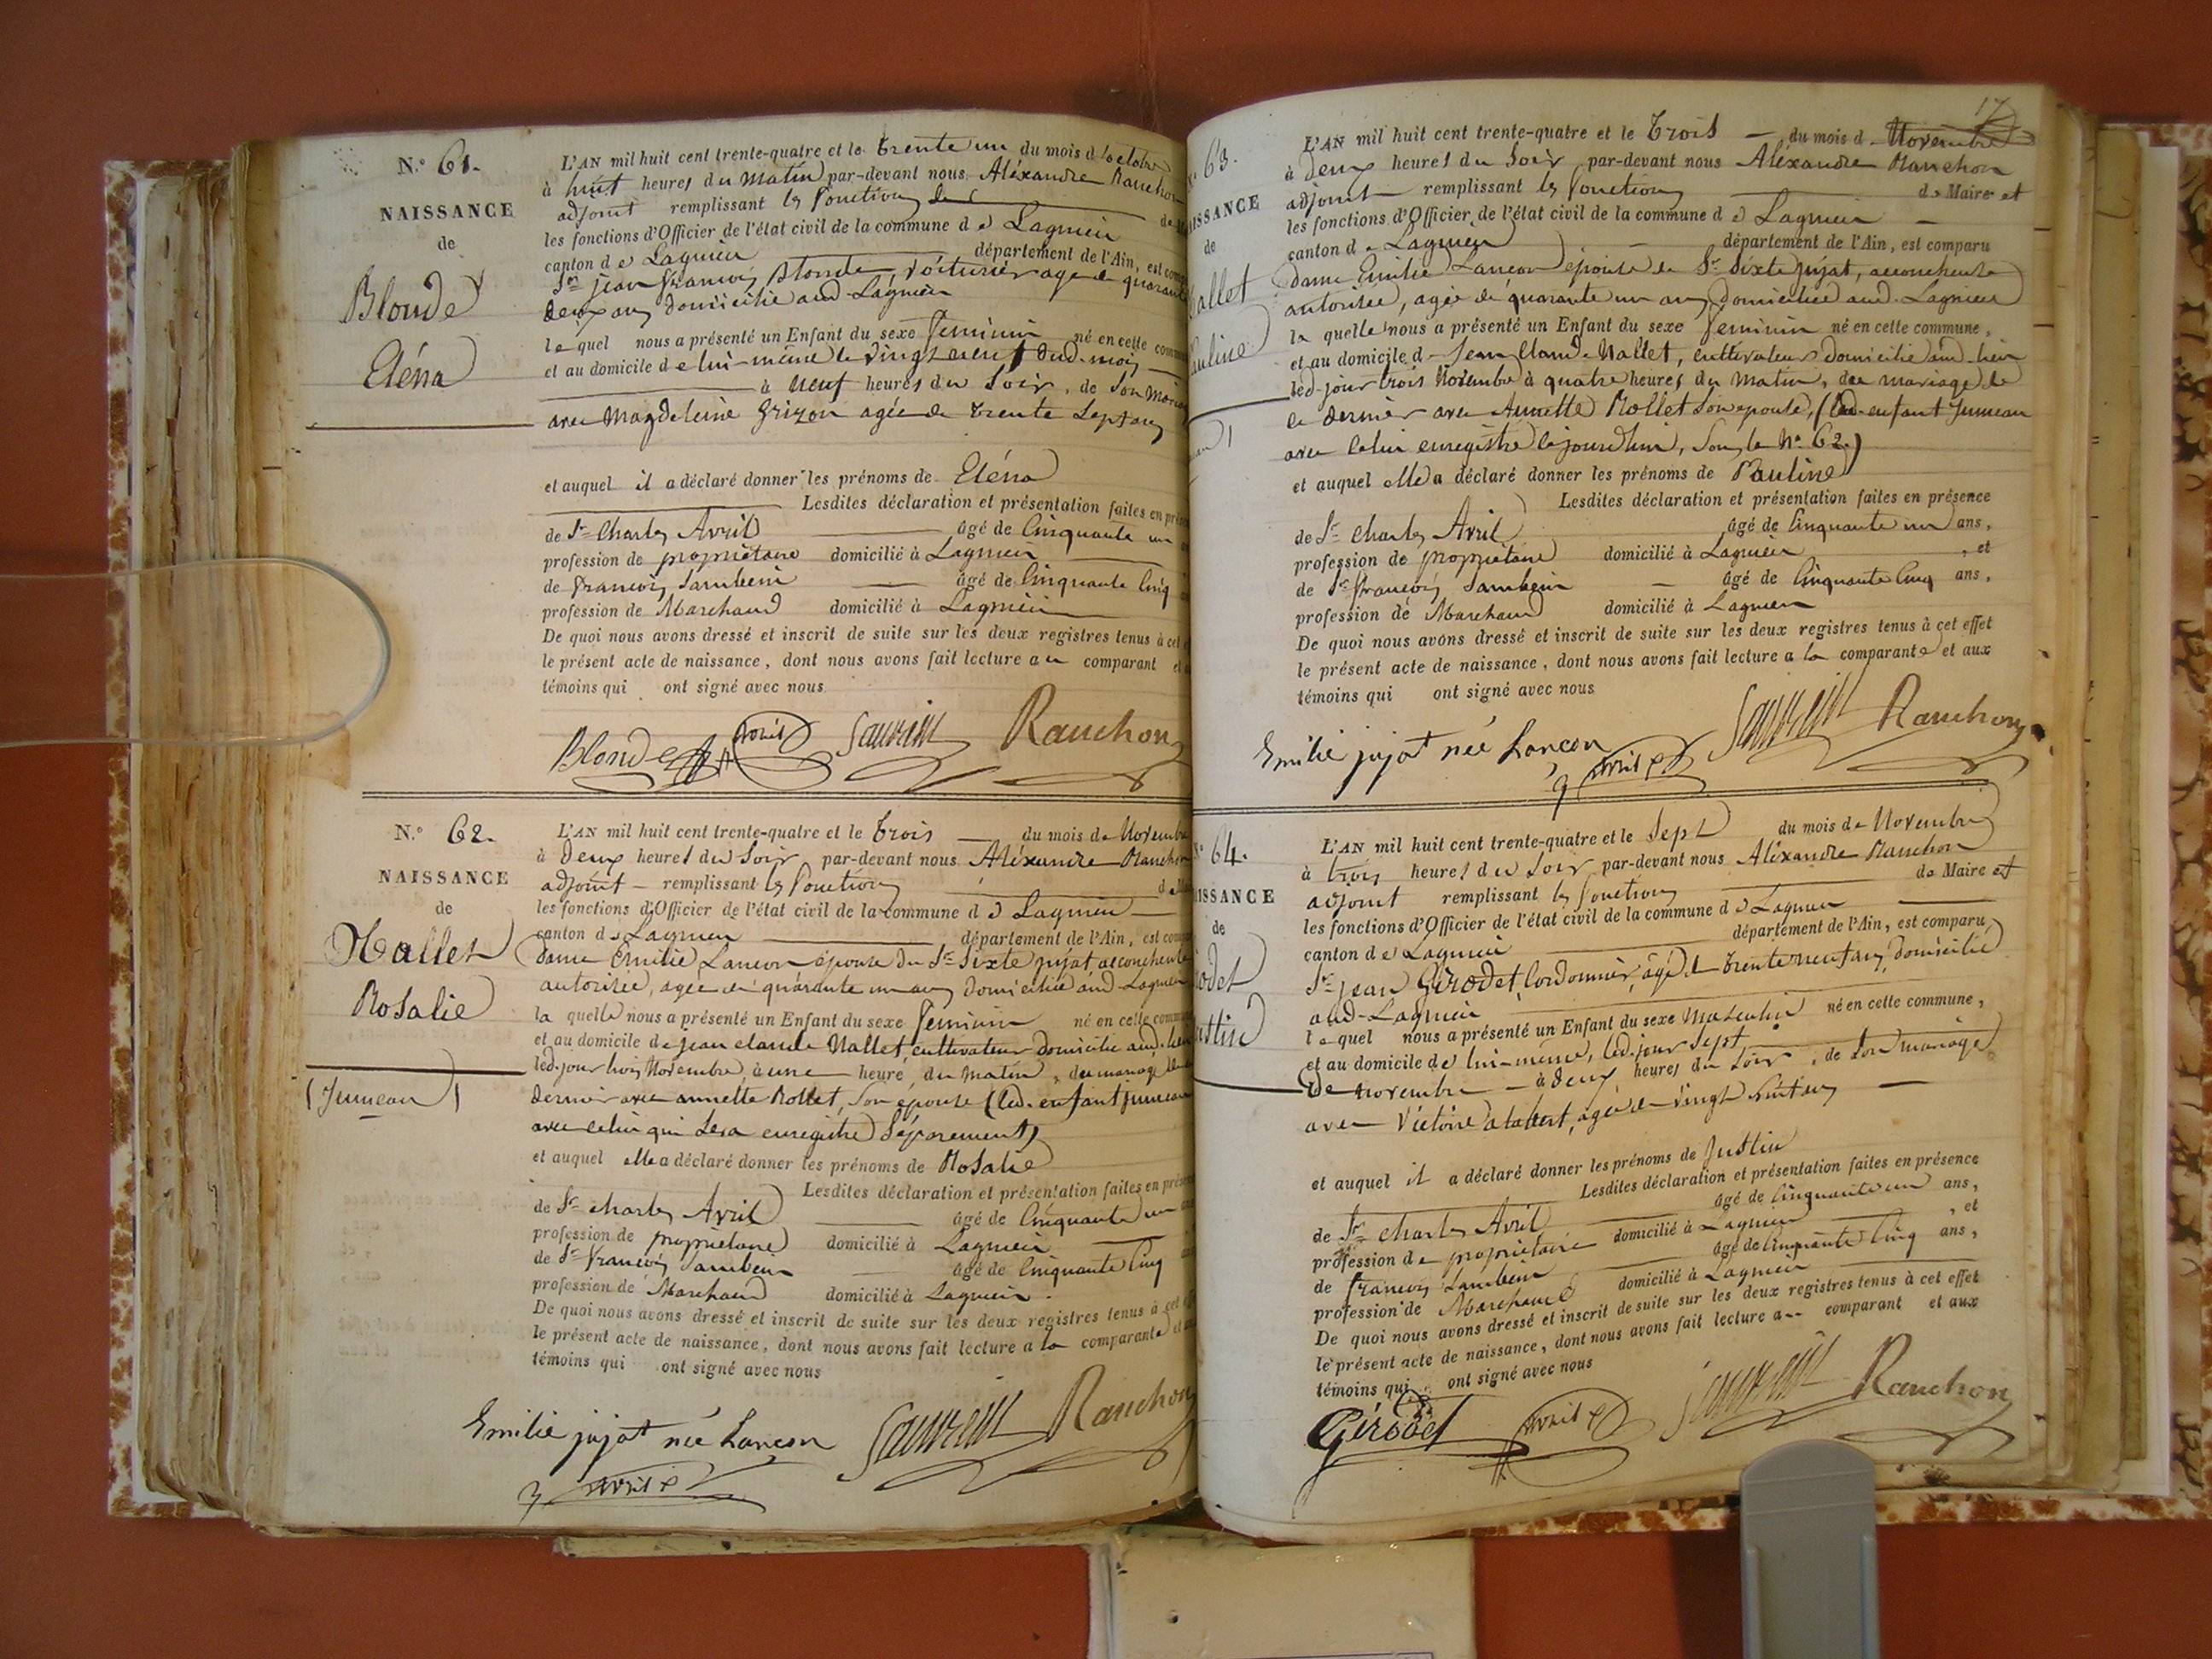 N.° 61.
NAISSANCE
de
Blonde
Eléna
L'AN mil huit cent trente-quatre et le trente un du mois d'octobre
à huit heures du matin par-devant nous Aléxandre Ranchon
adjoint remplissant les fonctions de
les fonctions d'Officier de l'état civil de la commune d e Lagnieu
canton d e Lagnieu département de l'Ain, est
Sr. jean françois Blonde, voiturier agé de
deux ans domicilié aud. Lagnieu
le quel nous a présenté un Enfant du sexe feminin né en cette
et au domicile d e lui-même le vingt neuf dud. mois
à neuf heures du soir, de son
avec Magdeleine Grizon agée de trente sept ans
et auquel il a déclaré donner les prénoms de Eléna
Lesdites déclaration et présentation faites en
de Sr. Charles Avril âgé de cinquante un
profession de propriétaire domicilié à Lagnieu
de françois Sambein âgé de cinquante cinq
profession de Marchand domicilié à Lagnieu
De quoi nous avons dressé et inscrit de suite sur les deux registres tenus à cet
le présent acte de naissance, dont nous avons fait lecture a u comparant
témoins qui ont signé avec nous
Blonde avril Ranchon
N.° 62.
NAISSANCE
de
Nallet
Rosalie
(Jumeau)
L'AN mil huit cent trente-quatre et le trois du mois de Novembre
à deux heures du soir par-devant nous Aléxandre Ranchon
adjoint remplissant les fonctions
les fonctions d'Officier de l'état civil de la commune d e Lagnieu
canton d e Lagnieu département de l'Ain, est
dame Emilie Lancon épouse du Sr. Sixte pujat, accoucheuse
autorisée, agée de quarante un ans domiciliée aud. Lagnieu
la quelle nous a présenté un Enfant du sexe feminin né en cette
et au domicile de jean claude Nallet, cultivateur domicilié aud. lieu
led. jour trois Novembre, à une heure du matin, du mariage
dernier avec annette Rollet, son épouse (led. enfant jumeau
avec celui qui sera enregistré séparement)
et auquel elle a déclaré donner les prénoms de Rosalie
Lesdites déclaration et présentation faites en
de Sr. charles Avril âgé de cinquante un
profession de propriétaire domicilié à Lagnieu
de Sr. françois Sambein âgé de cinquante cinq
profession de Marchand domicilié à Lagnieu
De quoi nous avons dressé et inscrit de suite sur les deux registres tenus à cet
le présent acte de naissance, dont nous avons fait lecture a la comparante
témoins qui ont signé avec nous
Emilie pujat née Lancon Ranchon
avril
17
63.
L'AN mil huit cent trente-quatre et le trois du mois d Novembre
à deux heures du soir par-devant nous Aléxandre Ranchon
adjoint remplissant les fonctions de Maire et
les fonctions d'Officier de l'état civil de la commune d e Lagnieu
canton d e Lagnieu département de l'Ain, est comparu
dame Emilie Lancon épouse de Sr. Sixte pujat, accoucheuse
autorisée, agée de quarante un ans domiciliée aud. Lagnieu
la quelle nous a présenté un Enfant du sexe feminin né en cette commune,
et au domicile d Jean Claude Nallet, cultivateur domicilié aud. lieu
led. jour trois Novembre à quatre heures du matin, du mariage de
ce dernier avec Annette Rollet son épouse, (led. enfant Jumeau
avec celui enregistré cejourd'hui, sous le N.° 62.)
et auquel elle a déclaré donner les prénoms de Pauline
Lesdites déclaration et présentation faites en présence
de Sr. Charles Avril âgé de cinquante un ans,
profession de propriétaire domicilié à Lagnieu, et
de Sr. françois Sambein âgé de cinquante cinq ans,
profession de Marchand domicilié à Lagnieu
De quoi nous avons dressé et inscrit de suite sur les deux registres tenus à cet effet
le présent acte de naissance, dont nous avons fait lecture a la comparante et aux
témoins qui ont signé avec nous
Emilie pujat née Lancon avril Ranchon
64.
L'AN mil huit cent trente-quatre et le sept du mois de Novembre
à trois heures du soir par-devant nous Aléxandre Ranchon
adjoint remplissant les fonctions de Maire et
les fonctions d'Officier de l'état civil de la commune d e Lagnieu
canton d e Lagnieu département de l'Ain, est comparu
Sr. jean Gérodet, cordonnier, âgé de trente neuf ans, domicilié
aud. Lagnieu
le quel nous a présenté un Enfant du sexe masculin né en cette commune,
et au domicile de lui-même, led. jour sept
de novembre à deux heures du soir, de son mariage
avec Victoire agée de vingt huit ans
et auquel il a déclaré donner les prénoms de Justin
Lesdites déclaration et présentation faites en présence
de Sr. charles Avril âgé de cinquante un ans,
profession de propriétaire domicilié à Lagnieu, et
de françois Sambein âgé de cinquante cinq ans,
profession de Marchand domicilié à Lagnieu
De quoi nous avons dressé et inscrit de suite sur les deux registres tenus à cet effet
le présent acte de naissance, dont nous avons fait lecture a u comparant et aux
témoins qui ont signé avec nous
Gérodet avril Ranchon